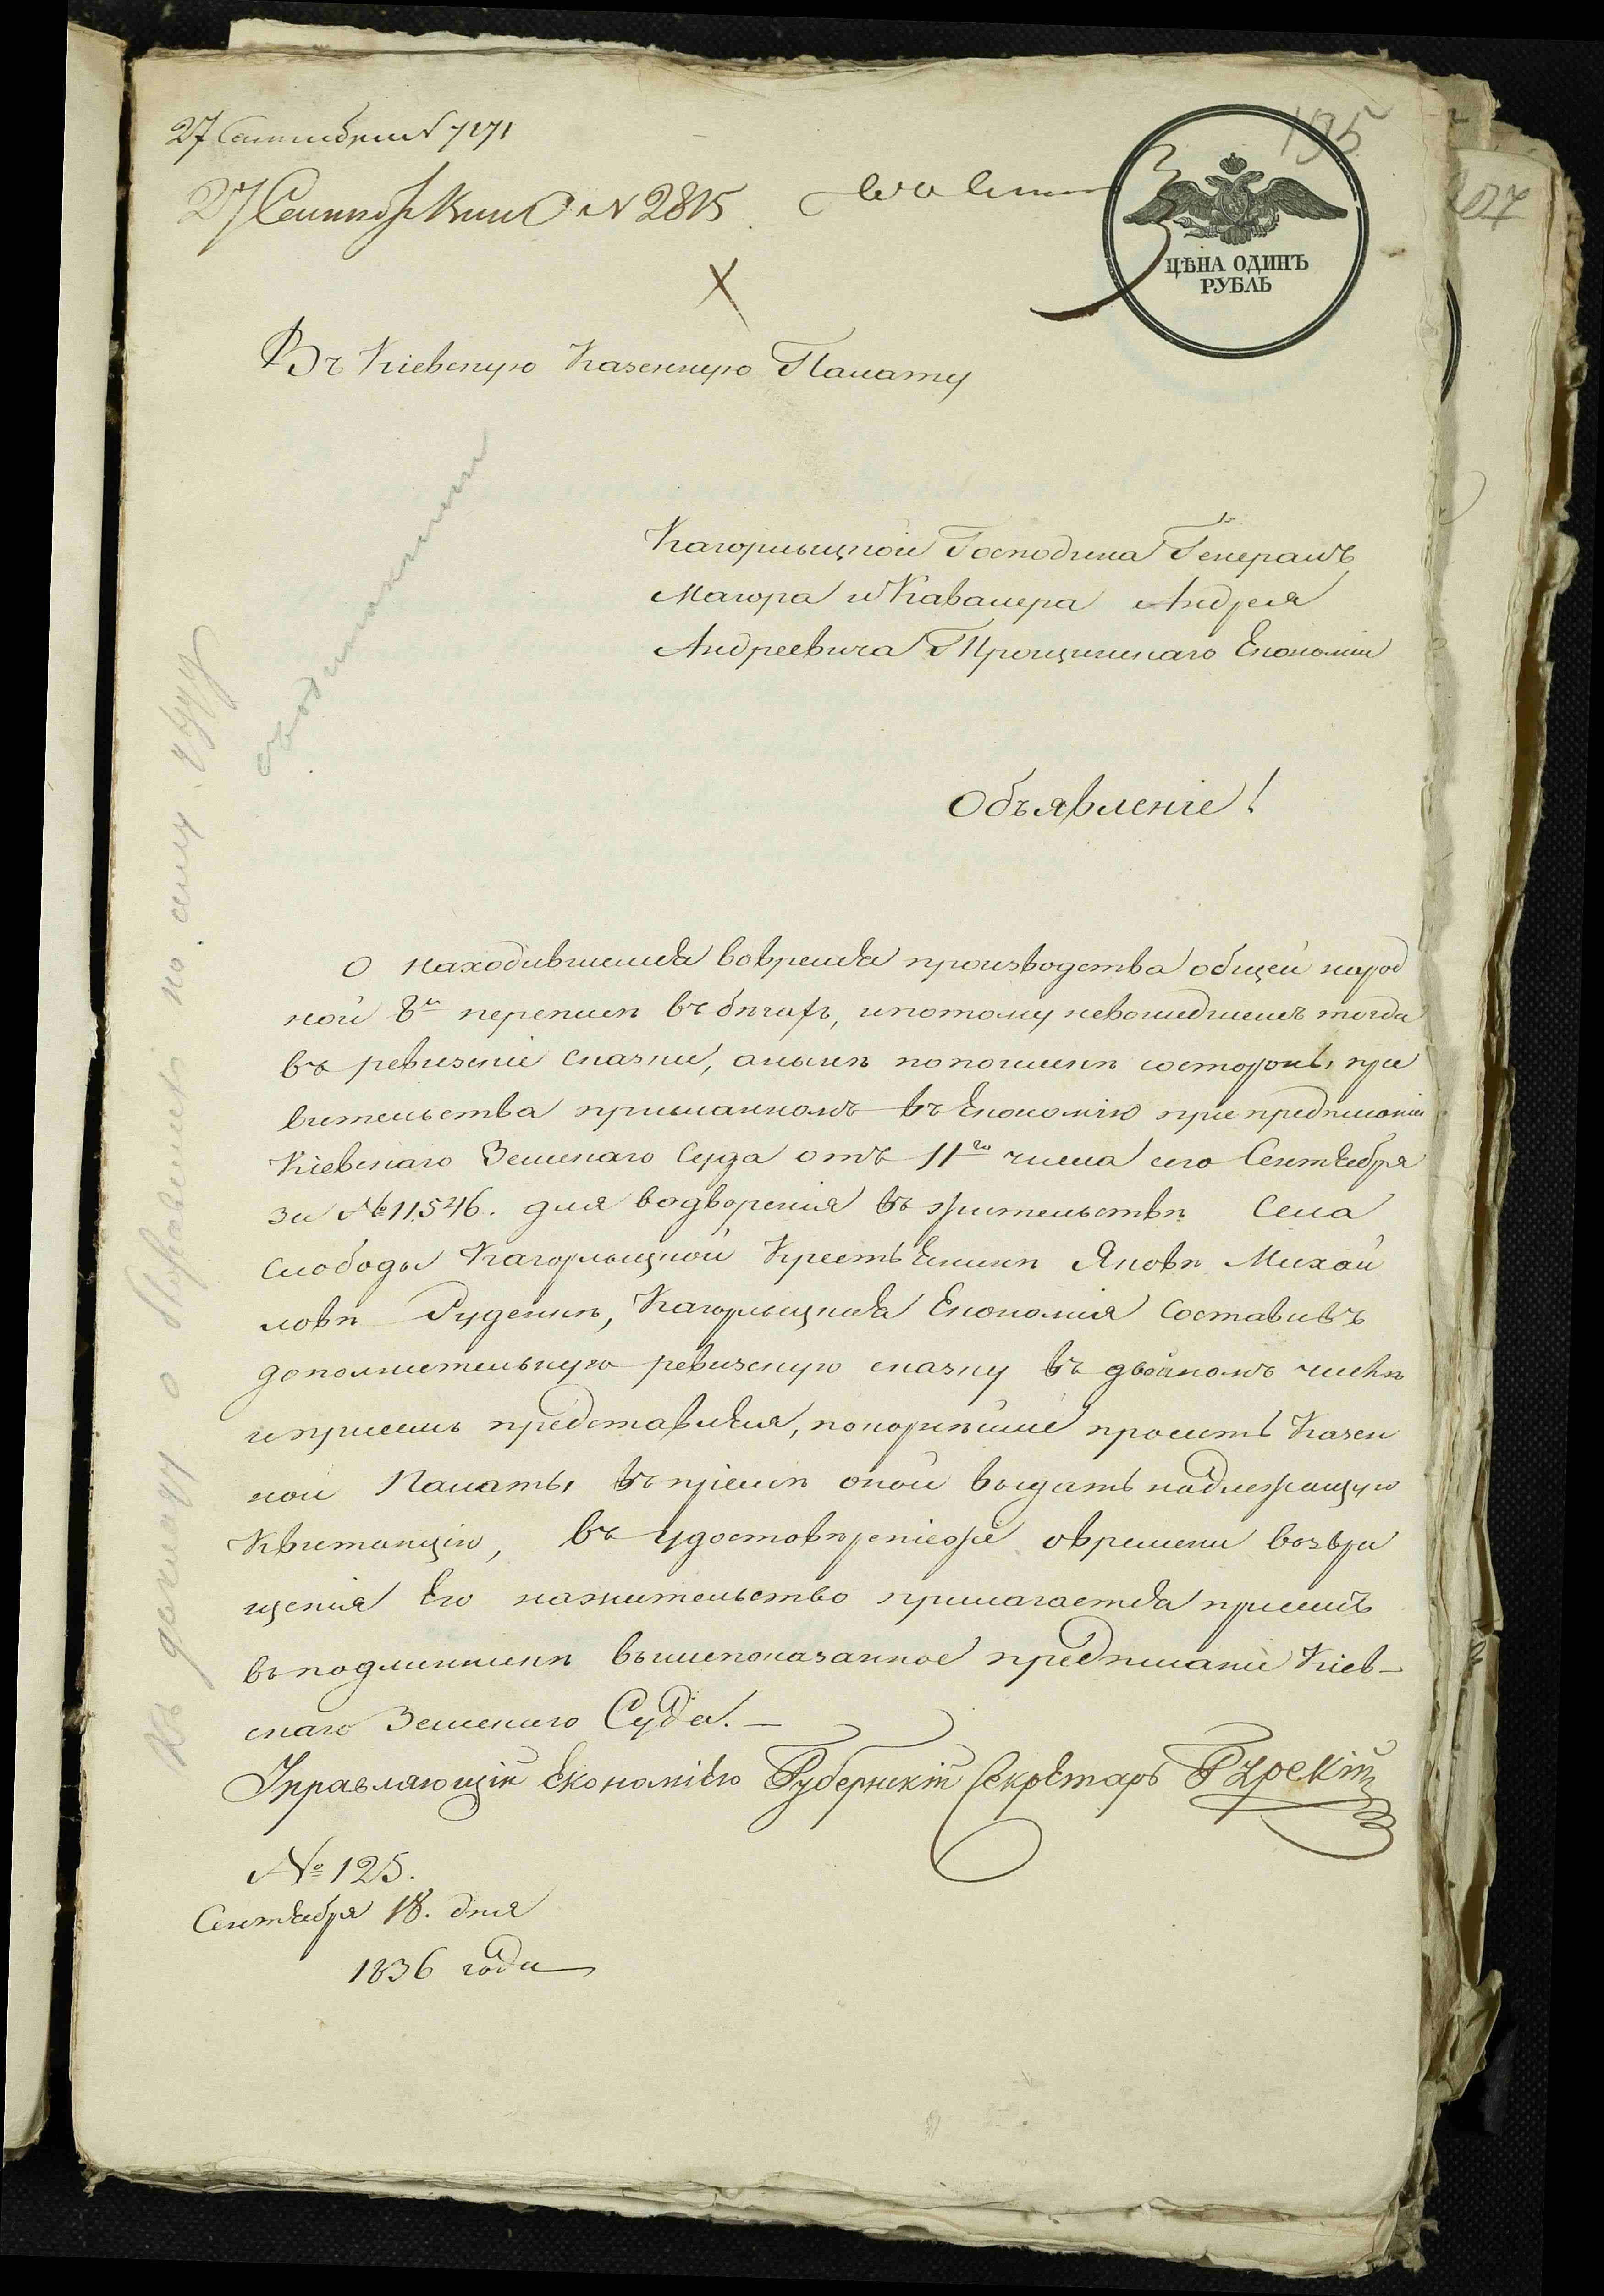 27 Сентября N 7171
27 Сентября N 2815
195
ЦѢНА ОДИНЪ
РУБЛЬ
107
Въ Кіевскую Казенную Палату
Кагорлыцкой Господина Генералъ
Маіора и Кавалера Андрея
Андреевича Трощинскаго Економіи
Объявленіе!
О находившемся вовремя производства общей народ
ной 8й переписи въ бѣгахъ, ипотому невошедшемъ тогда
въ ревизскіе сказки, анынѣ попоимкѣ состороны пра
вительства присланномъ въ Економію при предписаніи
Кіевскаго Земскаго Суда отъ 11го числа сего Сентября
за №11,546. для водворенія въ жительствѣ Села
Слободы Кагорлыцкой Крестьянинѣ Яковѣ Михай
ловѣ Руденкѣ, Кагорлыцкая Економія составивъ
дополнительную ревизскую сказку въ двойномъ числѣ
иприсемъ представляя, покорнѣйше проситъ Казен
ной Палаты въ пріемѣ оной выдать надлежащую
Квитанцію, въ удостовѣреніеже овремени возвра
щенія Его нажительство прилагается присемъ
въ подлинникѣ вышепоказанное предписаніе Кіев-
скаго Земскаго Суда.—
Управляющій Економіею Губернскій Секретарь Гурскій
№ 125.
Сентября 18. дня
1836 года
Къ докладу о по сему